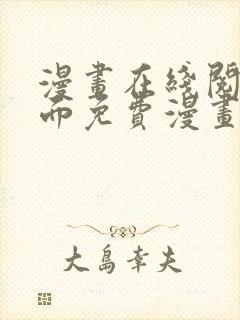 漫畫在綫閱
面免費漫畫
大島幸夫